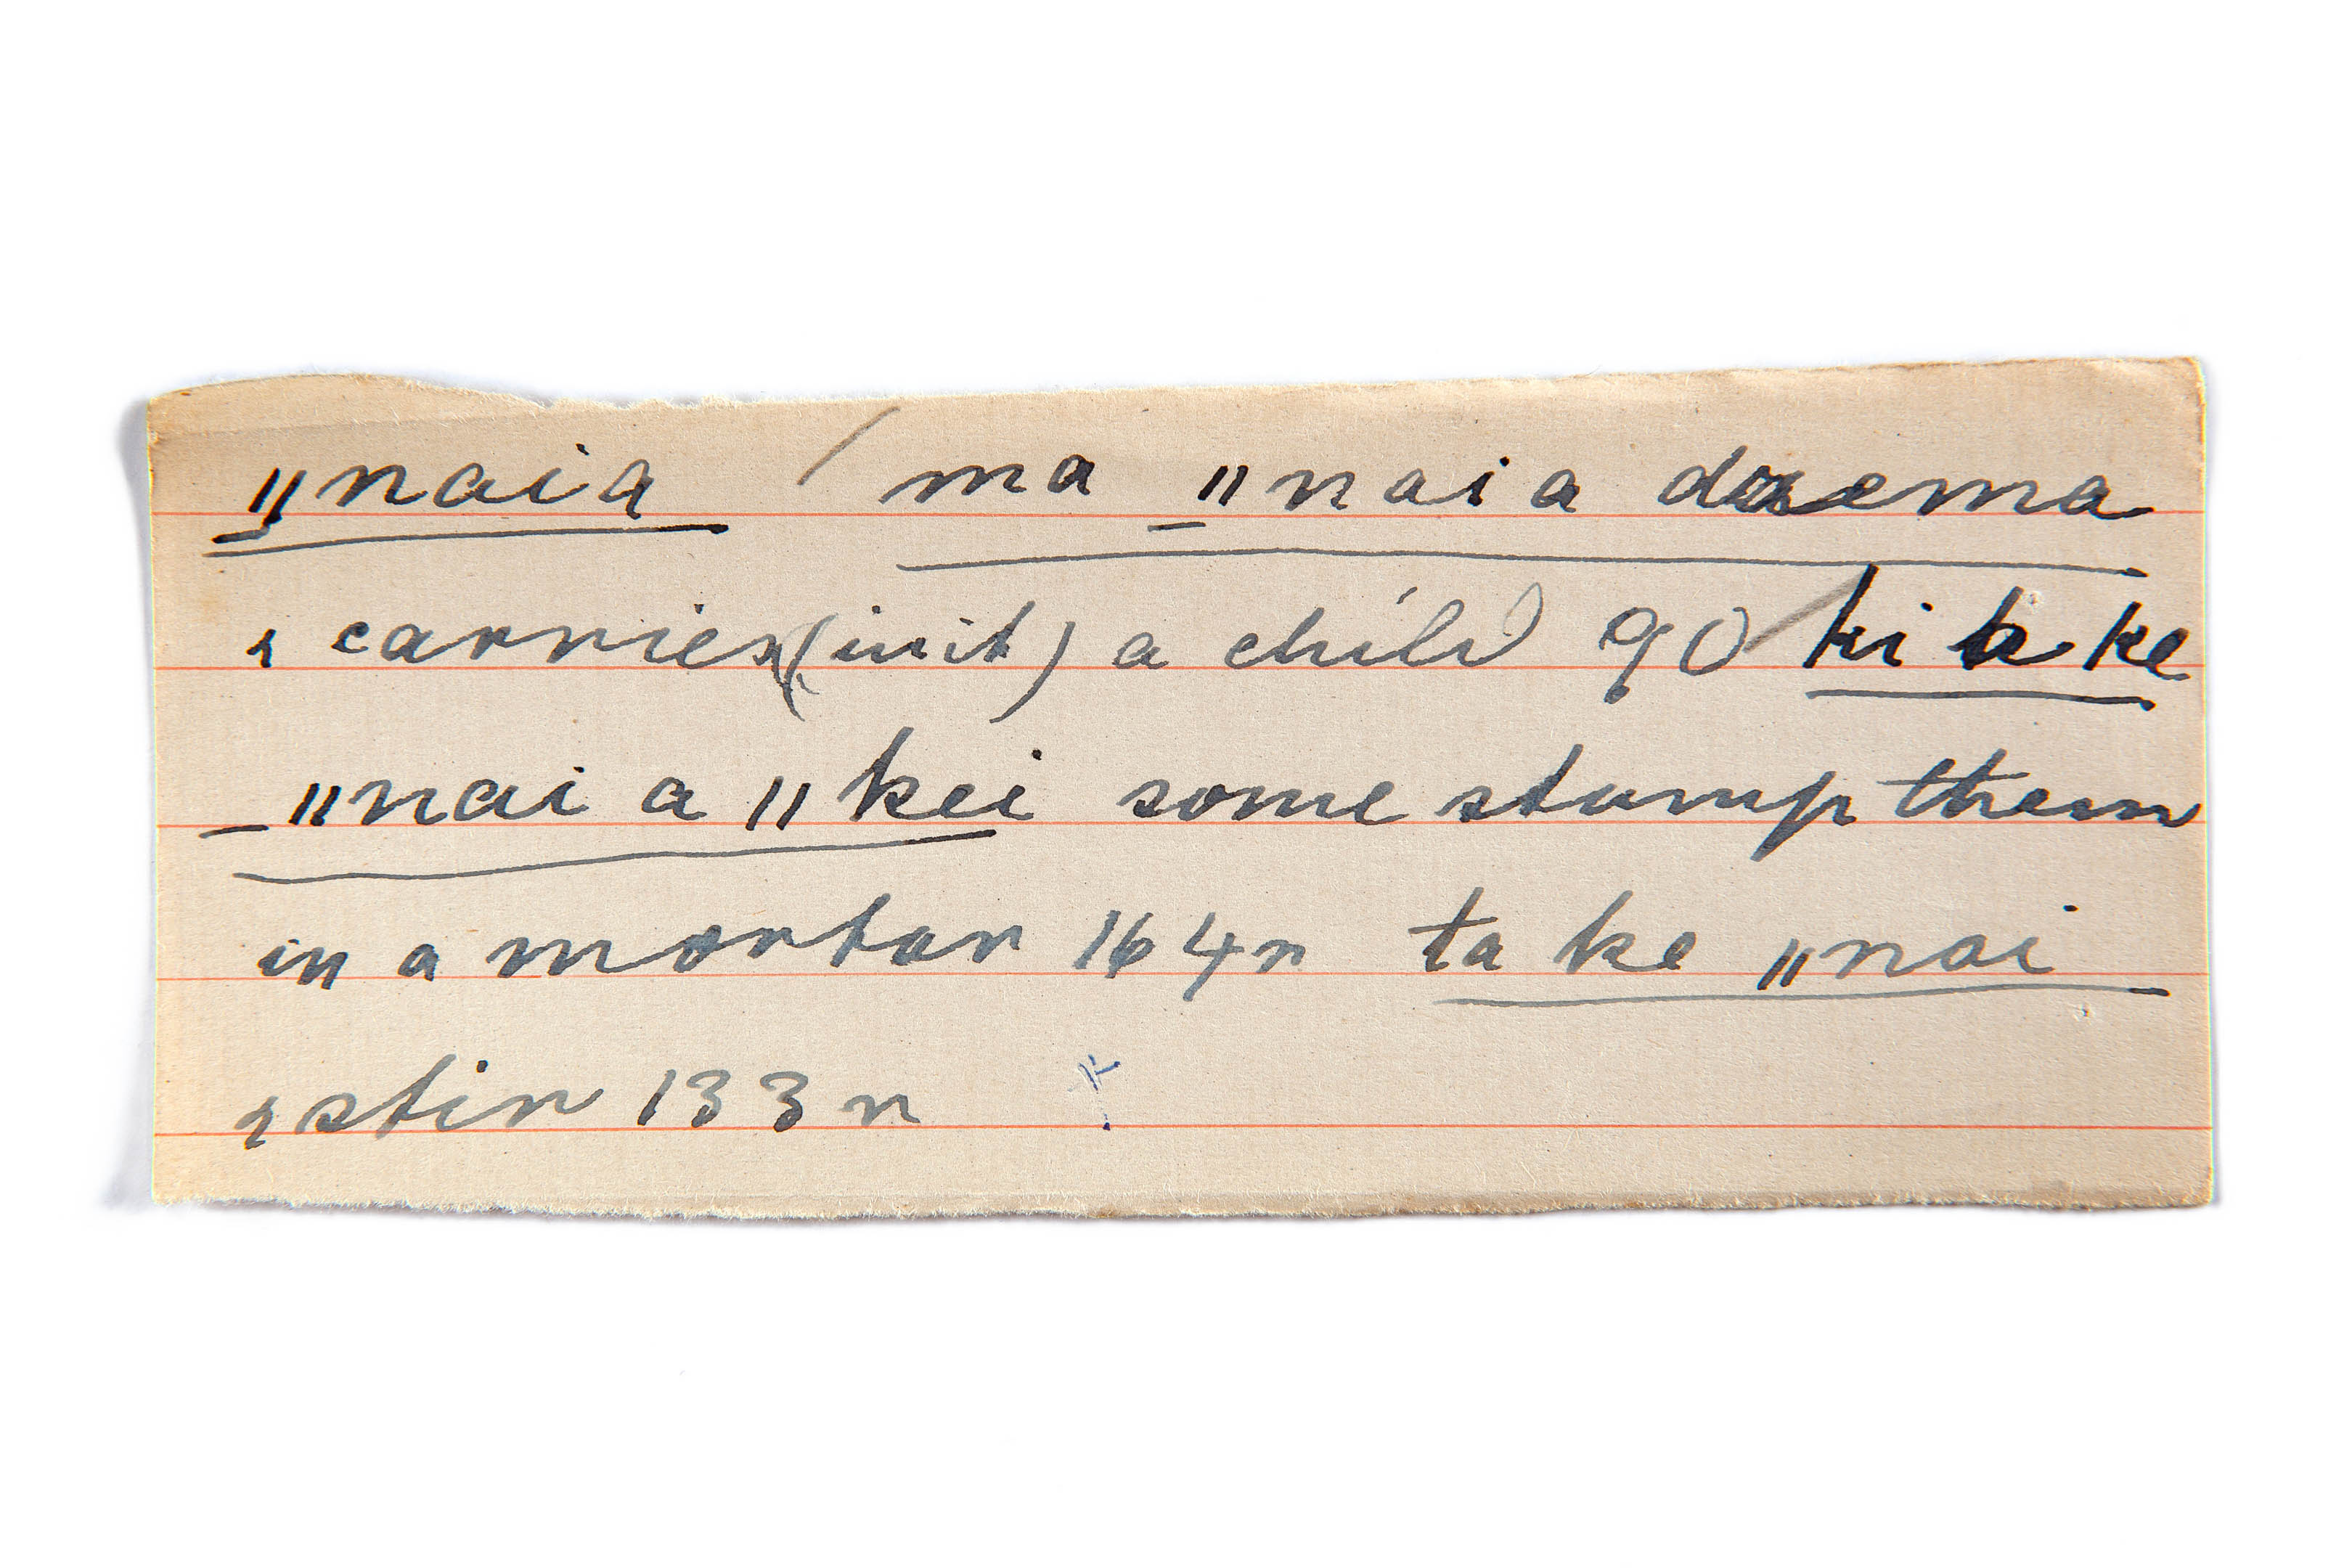 _ǁnaia / ma _ǁnaia dzema
1 carries (in it) a child 90 / hi k ke
_ǁnai a ǁkei some stump them
in a mortar 164r ta ke ǁnai
2 stir 133r